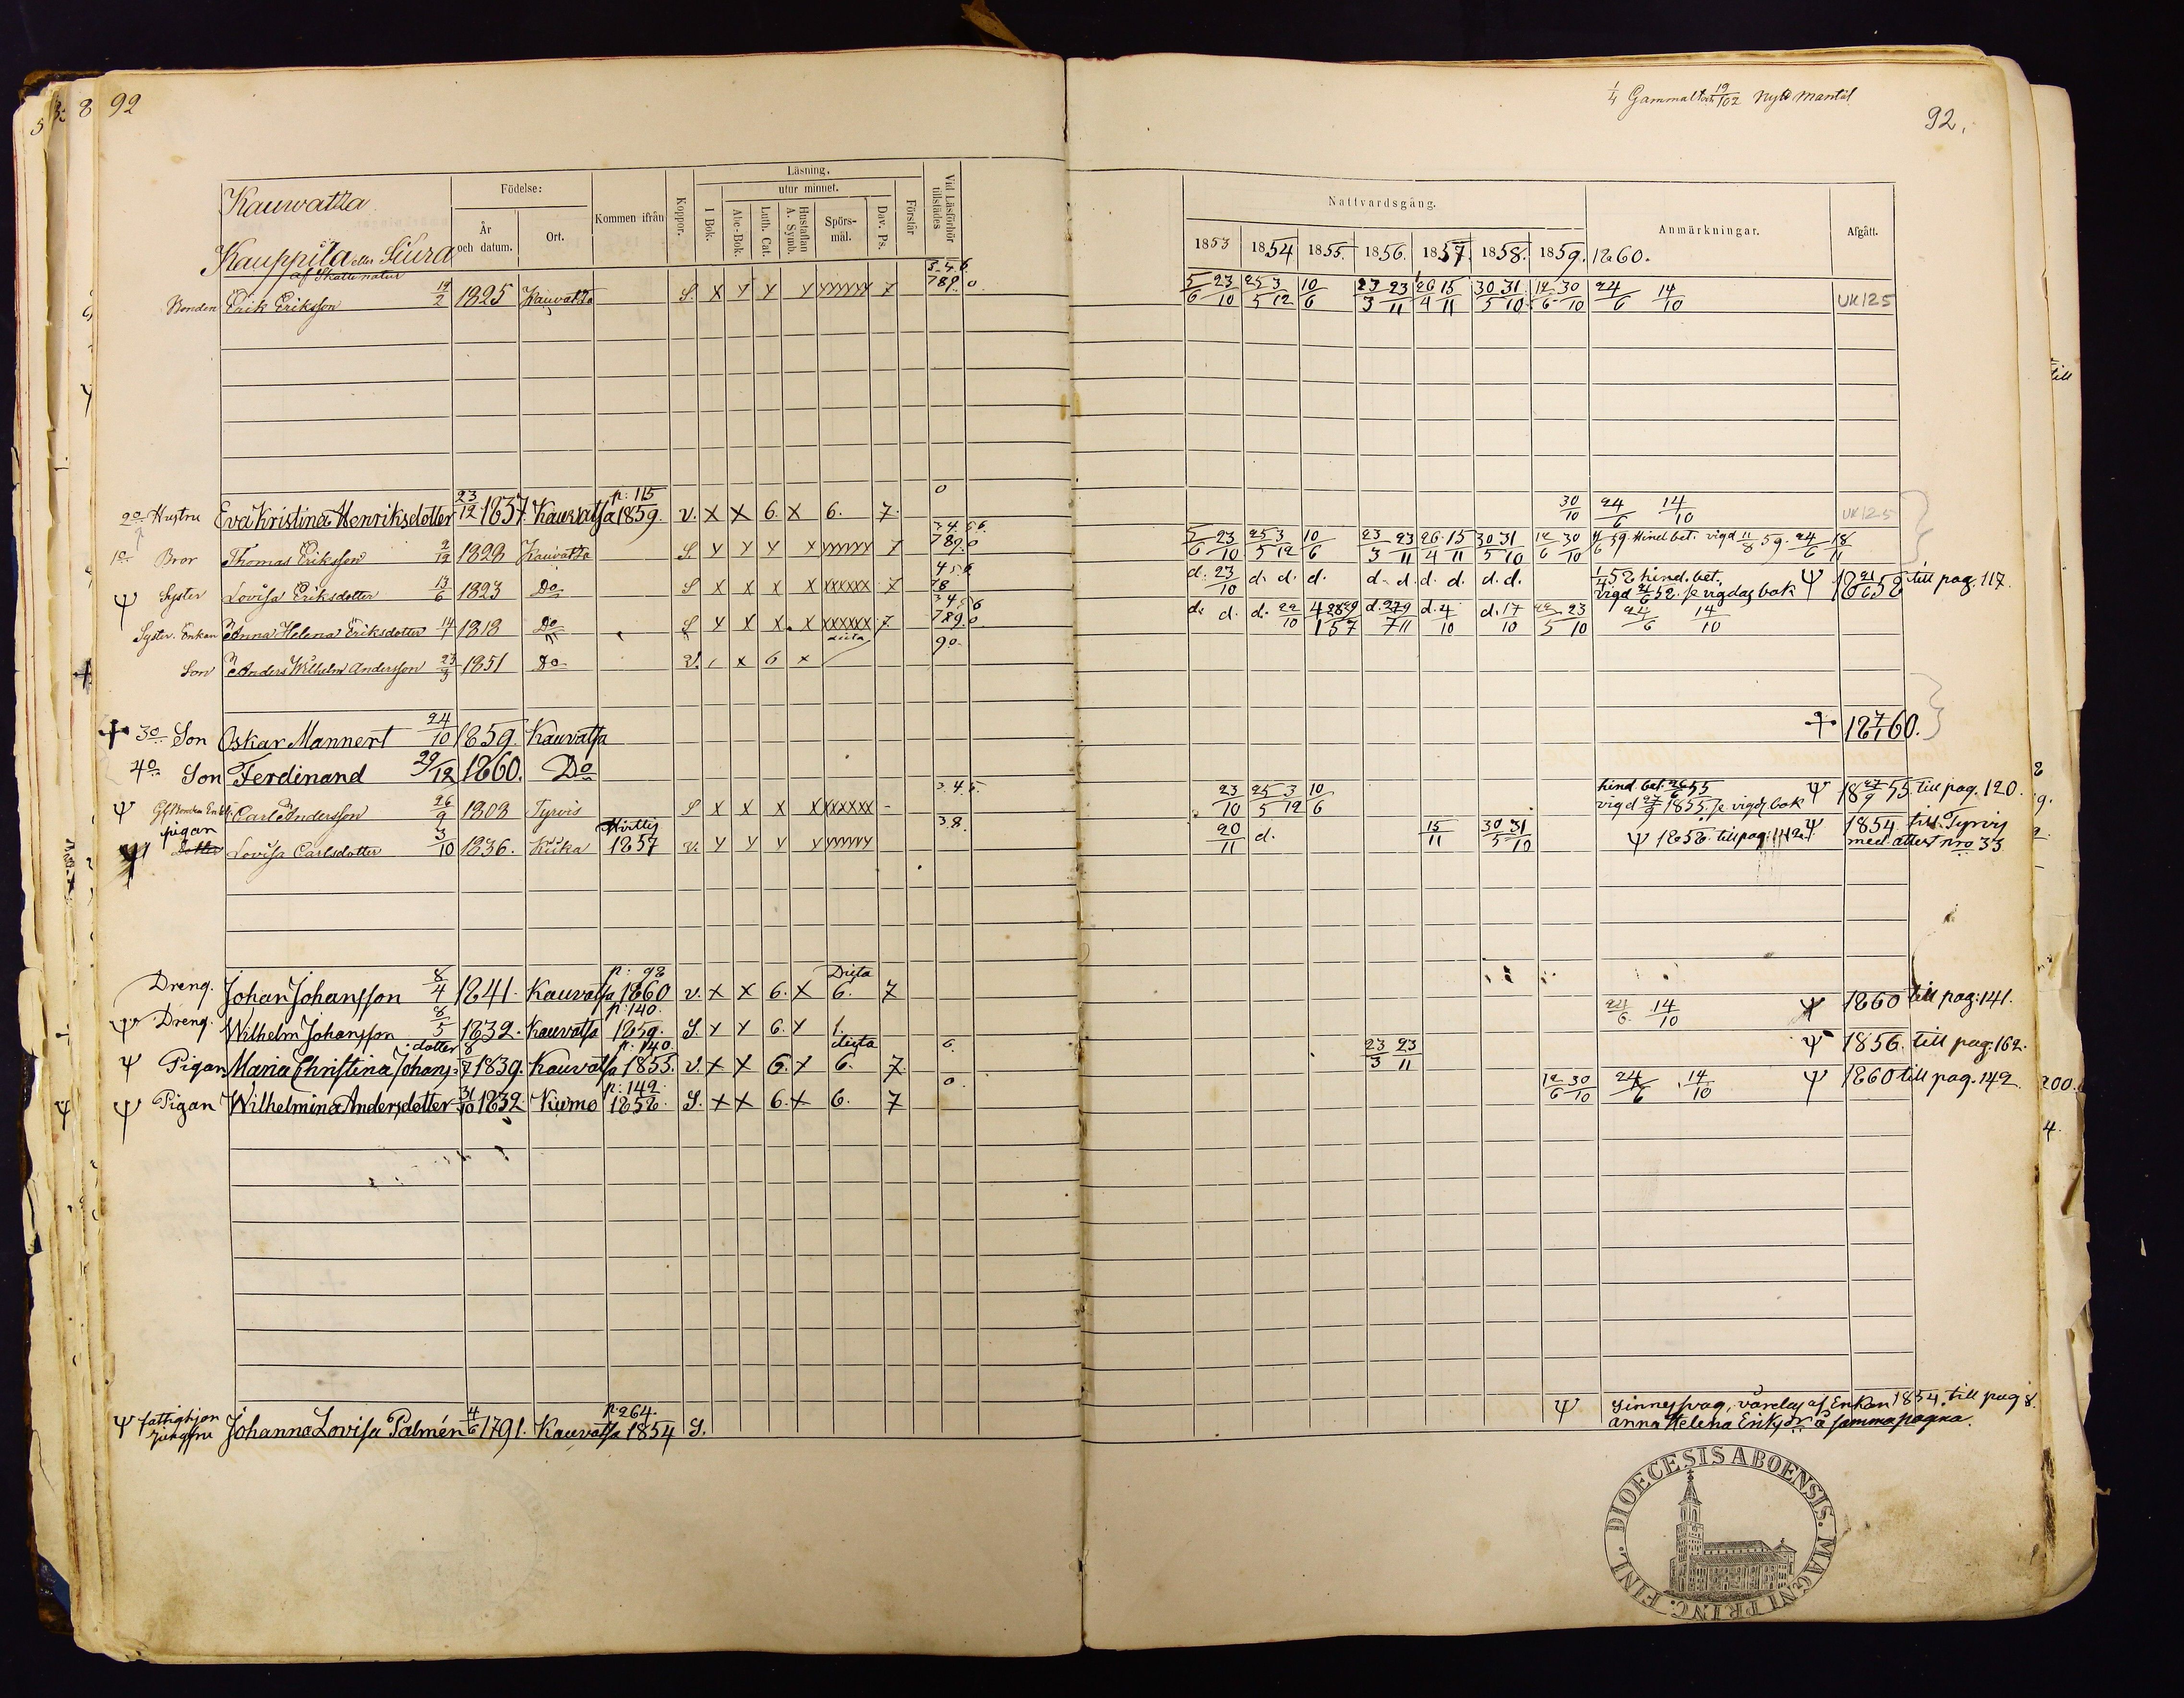 92
1/4 Gammalt och 19/102 nytt mantal
92.
Kauwatsa
Kauppila eller Siura
af Skattenatur
Födelse:
År och datum.
Ort.
Kommen ifrån
Koppor.
Läsning.
utur minnet.
I Bok.
Abc-Bok.
Luth. Cat.
Hustaflan A. Symb.
Spörsmål.
Dav. Ps.
Förstår
Vid Läsförhör tillstädes
Nattvardsgång.
1853 1854 1855. 1856. 1857. 1858. 1859. 1860.
Anmärkningar.
Afgått.
Bonden Erik Eriksson 19/2 1825 Kauvatsa S. X Y Y Y YYYYYY 7 3.4.6. 789.0 5/6 23/10 25/5 3/12 10/6 23/3 23/11 26/4 15/11 30/5 31/10 12/6 30/10 24/6 14/10 UK125
2o Hustru Eva Kristina Henriksdotter 23/12 1837. Kauvatsa p: 115 1859. v. X X 6. X 6. 7. 0 30/10 24/6 14/10 UK125
1o Bror Thomas Eriksson 2/12 1828 Kauvatsa S. Y Y Y X YYYYYY 7 789.0 5/6 23/10 25/5 3/12 10/6 23/3 23/11 26/4 15/11 30/5 31/10 12/6 30/10 59. Hind.bet. vigd 11/8 59. 24/6 18/11
Ψ Syster Lovisa Eriksdotter 13/6 1823 Do S X X X X XXXXXX 7 4 5 6 78 d. 23/10 d. d. d. d. d. d. d. d. d. 1/4 58 hind. bet. vigd 21/6 58. se vigdas bok Ψ 18 21/6 58 till pag. 117.
Syster. Enkan Anna Helena Eriksdotter 14/7 1818 Do S Y X X X XXXXXX 7 789.0 d. d. d. 22/10 d. d. 4/10 d. 17/10 22/5 23/10 24/6 14/10
Son Anders Wilhelm Andersson 23/3 1851 Do V. X 6 X 90.
✝ 3o Son Oskar Mannert 24/10 1859. Kauvatsa ✝ 18 7/1 60.
4o Son Ferdinand 29/12 1860. Do
Ψ Carl Andersson 26/9 1808 Tyrvis S X X X X XXXXXX - 3.4.5. 23/10 25/5 3/12 10/6 hind. bet. 26/6 55 vigd 27/9 1855. se vigds bok Ψ 18 27/9 55. till pag. 120.
pigan
Dotter Lovisa Carlsdotter 3/10 1836. Kiika Hvittis 1857 v. Y Y Y Y YYYYYY 3.8. 20/11 d. 15/11 30/5 31/10 Ψ 1858. till pag: 142. Ψ 1854. till Tyrvis med attest nro 33
Dreng. Johan Johansson 8/4 1841. Kauvatsa p: 98 1860 v. X X 6. X Dicta 6. 7 24/6. 14/10 Ψ 1860 till pag: 141.
Ψ Dreng. Wilhelm Johansson 8/5 1832. Kauvatsa p: 140. 1859. S. Y Y 6. Y 6. 23/3 23/11 Ψ 1856. till pag: 162.
Ψ Pigan Maria Christina Johans: dotter 8/7 1839. Kauvatsa p: 140. 1855. v. X X 6. X dicta 6. 7. 0 12/6 30/10 24/6 14/10 Ψ 1860 till pag. 142
Ψ Pigan Wilhelmina Andersdotter 31/10 1832. Kumo p: 142. 1858. S. X X 6. X 6. 7
Ψ fattighjon Jungfru Johanna Lovisa Palmén 4/6 1791. Kauvatsa p. 264. 1854 S. Ψ Sinnessvag, vårdas af Enkan 1854. till pag 8.
Anna Helena Eriksdr. å samma pagina.
DIOECESIS ABOENSIS. MAGNI PRINC. FINL.